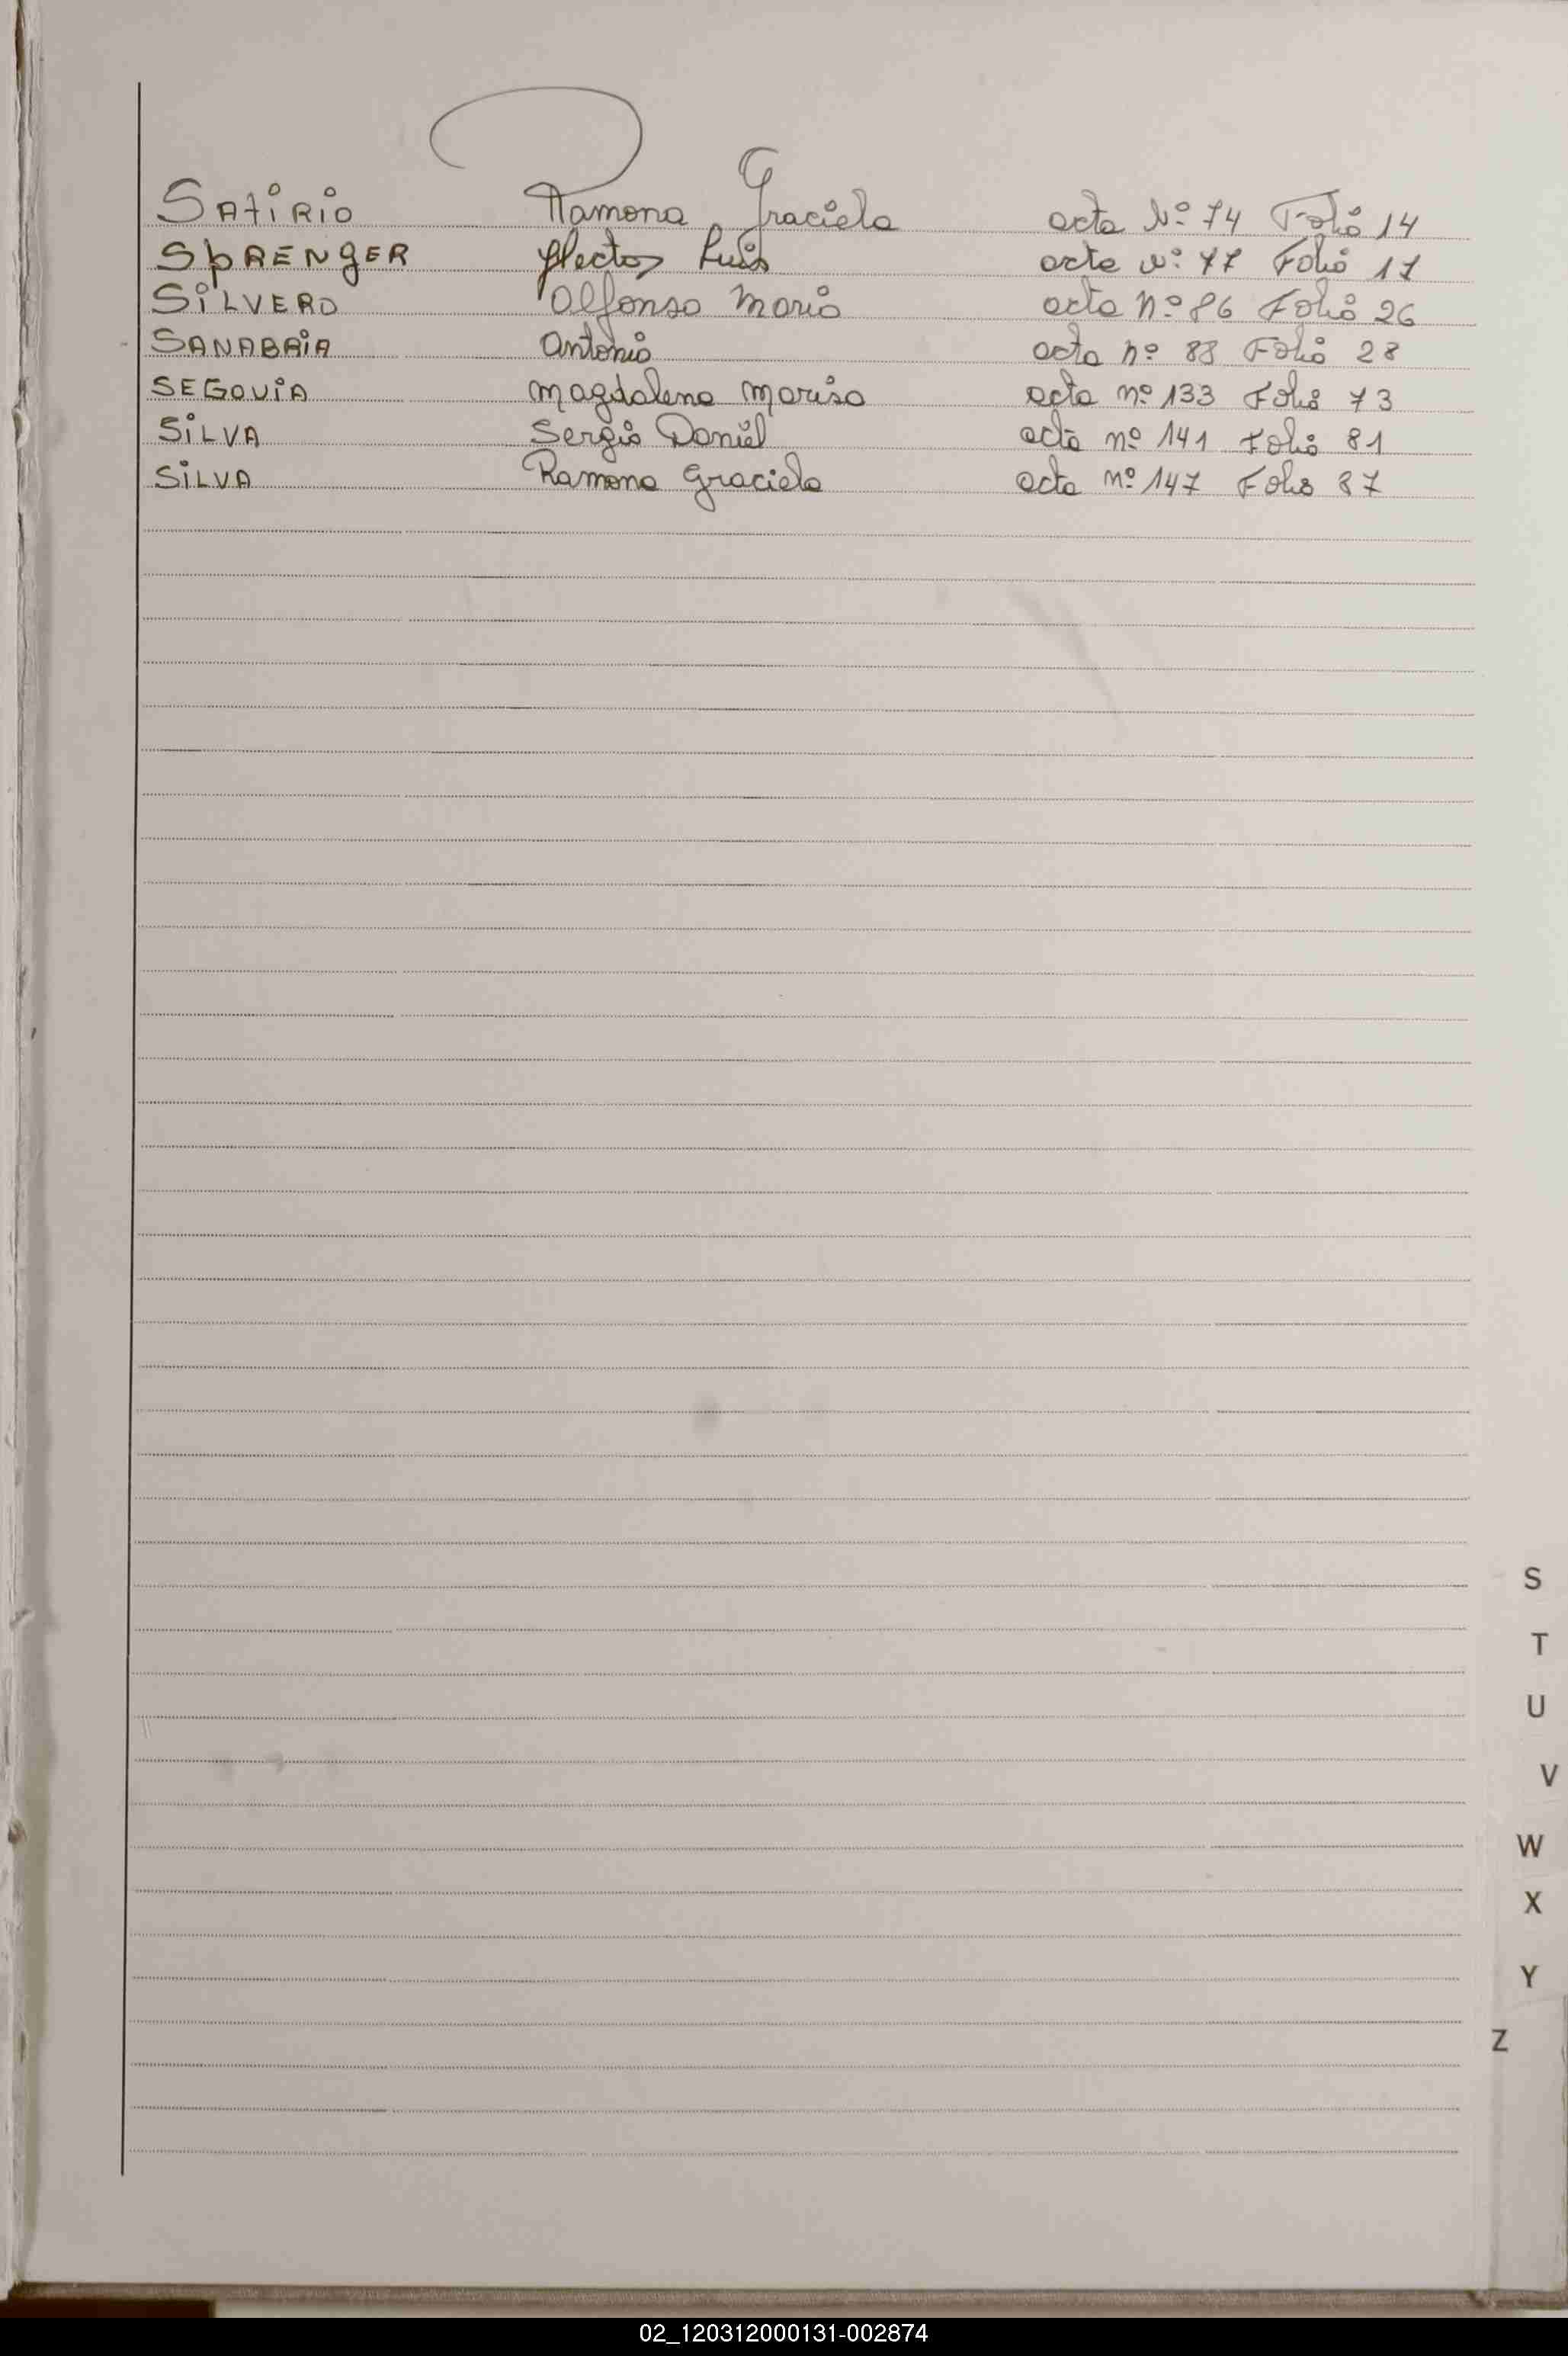 SATIRIO Ramona Graciela acta Nº 74 Folio 14
SpRENgER Hector Luis acta Nº 77 Folio 17
SiLVERO Alfonso Mario acta nº 86 Folio 26
SANABRiA Antonio acta nº 88 Folio 28
SEGOViA Magdalena Marisa acta nº 133 Folio 73
SiLVA Sergio Daniel acta nº 141 Folio 81
SiLVA Ramona Graciela acta nº 147 Folio 87
S
T
U
V
W
X
Y
Z
02_120312000131-002874